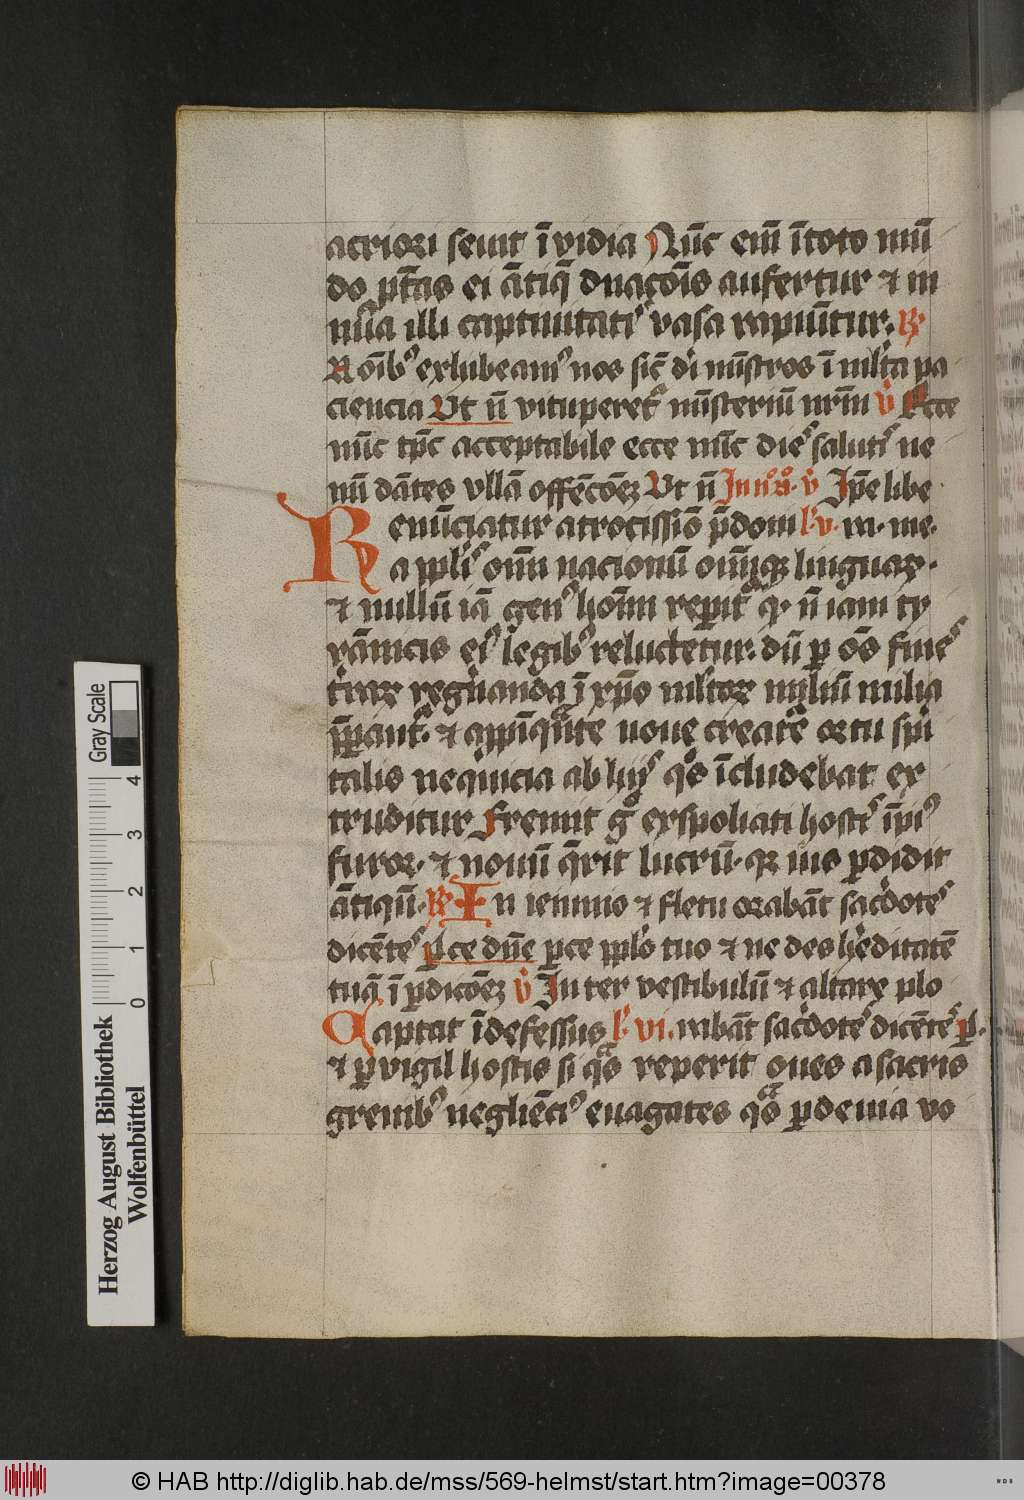 acriori seuit ī vidia Nūc em̄ ī toto mū
do p̄tas ei ātiq̄ dn̄acōis aufertur ⁊ m
nūa illi captiuitati᷒ vasa rapiūtur. ℟
N oīb᷒ exhibeam᷒ nos sic̄ di mīstros ī mlta pa
ciencia Vt n̄ vituperet᷑ mīsteriū nrm̄ v̄ Ecce
nūc tp̄c acceptabile ecce nūc die᷒ saluti᷒ ne
mī dātes vllā offēcōeꝫ Vt n̄ Inuꝰ. v̄ Ip̄e libe
Renūciatur atrocissiō p̄doni l̓ v. m. me.
a ppl̓i᷒ om̄i nacionū om̄iqꝫ linguaꝝ.
⁊ nullū iā gen᷒ hoīm reperit᷑ q. n̄ iam ty
rānicis ei᷒ legib᷒ reluctet᷑. dū ꝑ oēs fine᷒
t̓raꝝ regnanda ī xp̄o mltaꝝ miliū milia
p̄pant᷑. ⁊ appīquāte noue creat᷑e ortu spi
talis nequicia ab hijs qo᷒s īcludebat ex
truditur Fremit g̊ exspoliati hosti᷒ īpi᷒
furor. ⁊ nouū q̄rit lucrū. qꝫ ius ꝑdidit
ātiquū. ℟ In ieiunio ⁊ fletu orabāt sac̓dote᷒
dicēte᷒ ꝑce dn̄e ꝑce ppl̓o tuo ⁊ ne des h̓editatē
tuā ī ꝑdicōeꝫ v̄ Inter vestibulū ⁊ altare plo
Captat īdefessus l̓ vi. rabāt sac̓dote᷒ dicēte᷒ ꝑ.
⁊ ꝑvigil hostis si qᵃs reperit oues a sacris
gremb᷒ negliēci᷒ euagātes qᵃs ꝑ deuia vo
Herzog August Bibliothek
Wolfenbüttel
0 1 2 3 4
Gray Scale
© HAB http://diglib.hab.de/mss/569-helmst/start.htm?image=00378